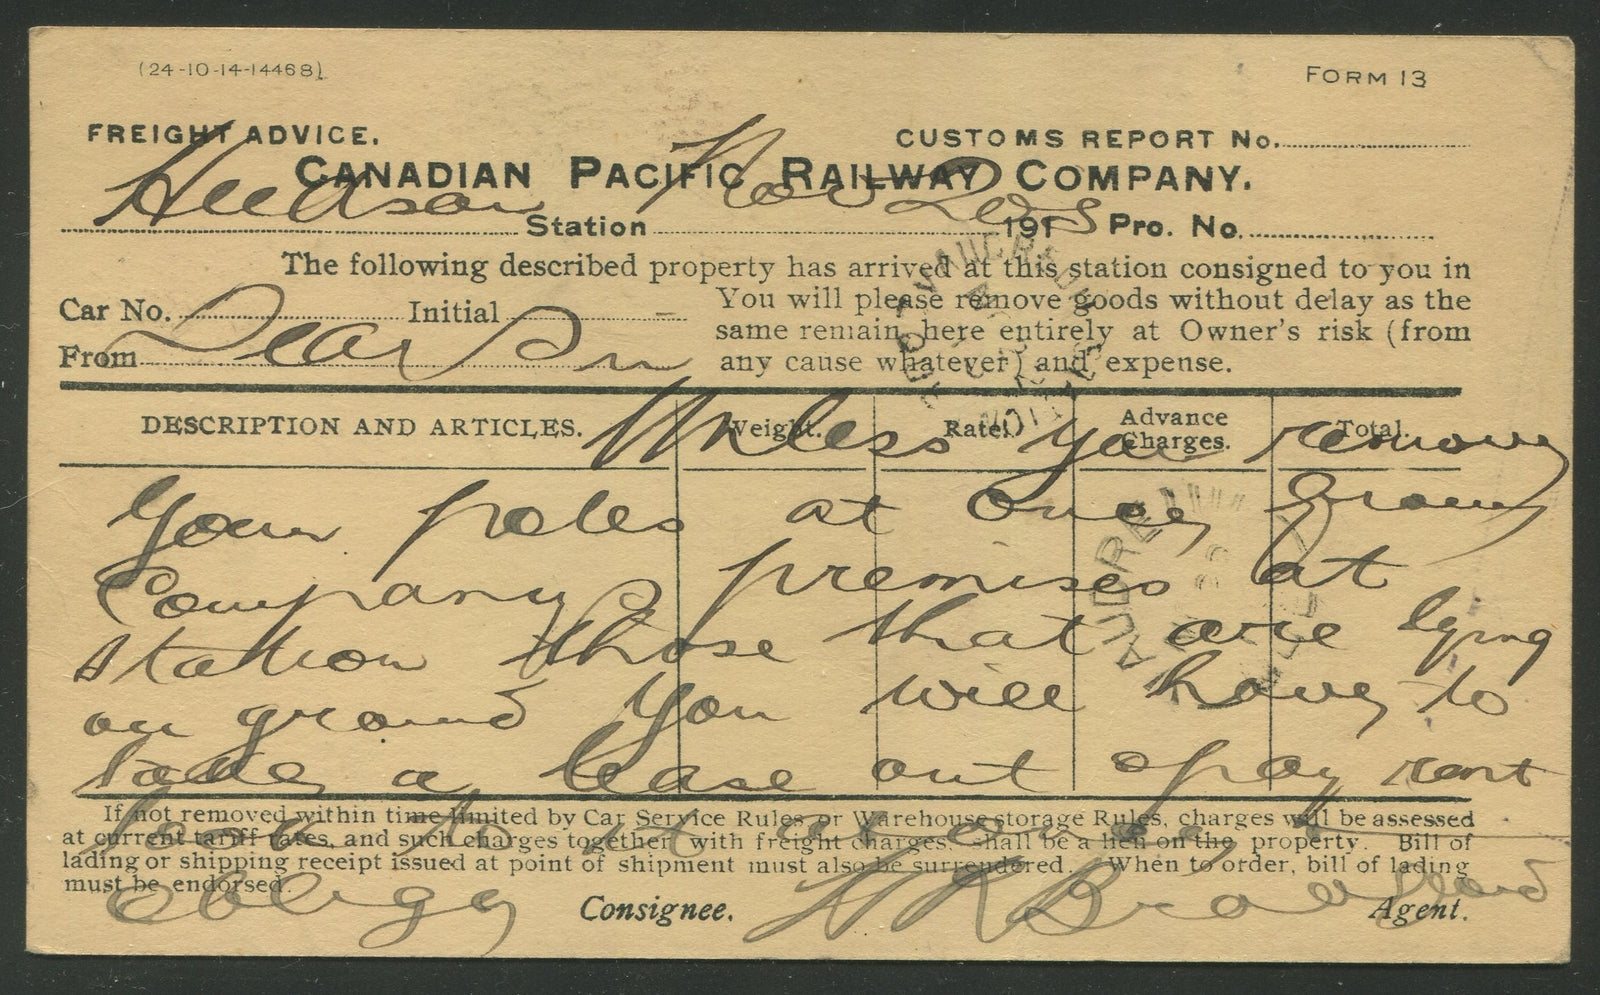 (24-10-14-14468)
FORM 13
FREIGHT ADVICE.
CUSTOMS REPORT No.
CANADIAN PACIFIC RAILWAY COMPANY.
Hudson Station Nov 20 1915 Pro. No.
The following described property has arrived at this station consigned to you in
Car No. Initial
You will please remove goods without delay as the
same remain here entirely at Owner's risk (from
any cause whatever) and expense.
From
Dear Sir
DESCRIPTION AND ARTICLES. Weight. Rate. Advance Charges. Total.
Unless you remove
your poles at once from
Company's premises at
station those that are lying
on ground you will have to
take a lease out & pay rent
If not removed within time limited by Car Service Rules or Warehouse storage Rules, charges will be assessed
at current tariff rates, and such charges together with freight charges, shall be a lien on the property. Bill of
lading or shipping receipt issued at point of shipment must also be surrendered. When to order, bill of lading
must be endorsed.
to it at once &
oblige
Consignee.
Agent.
AUDRE